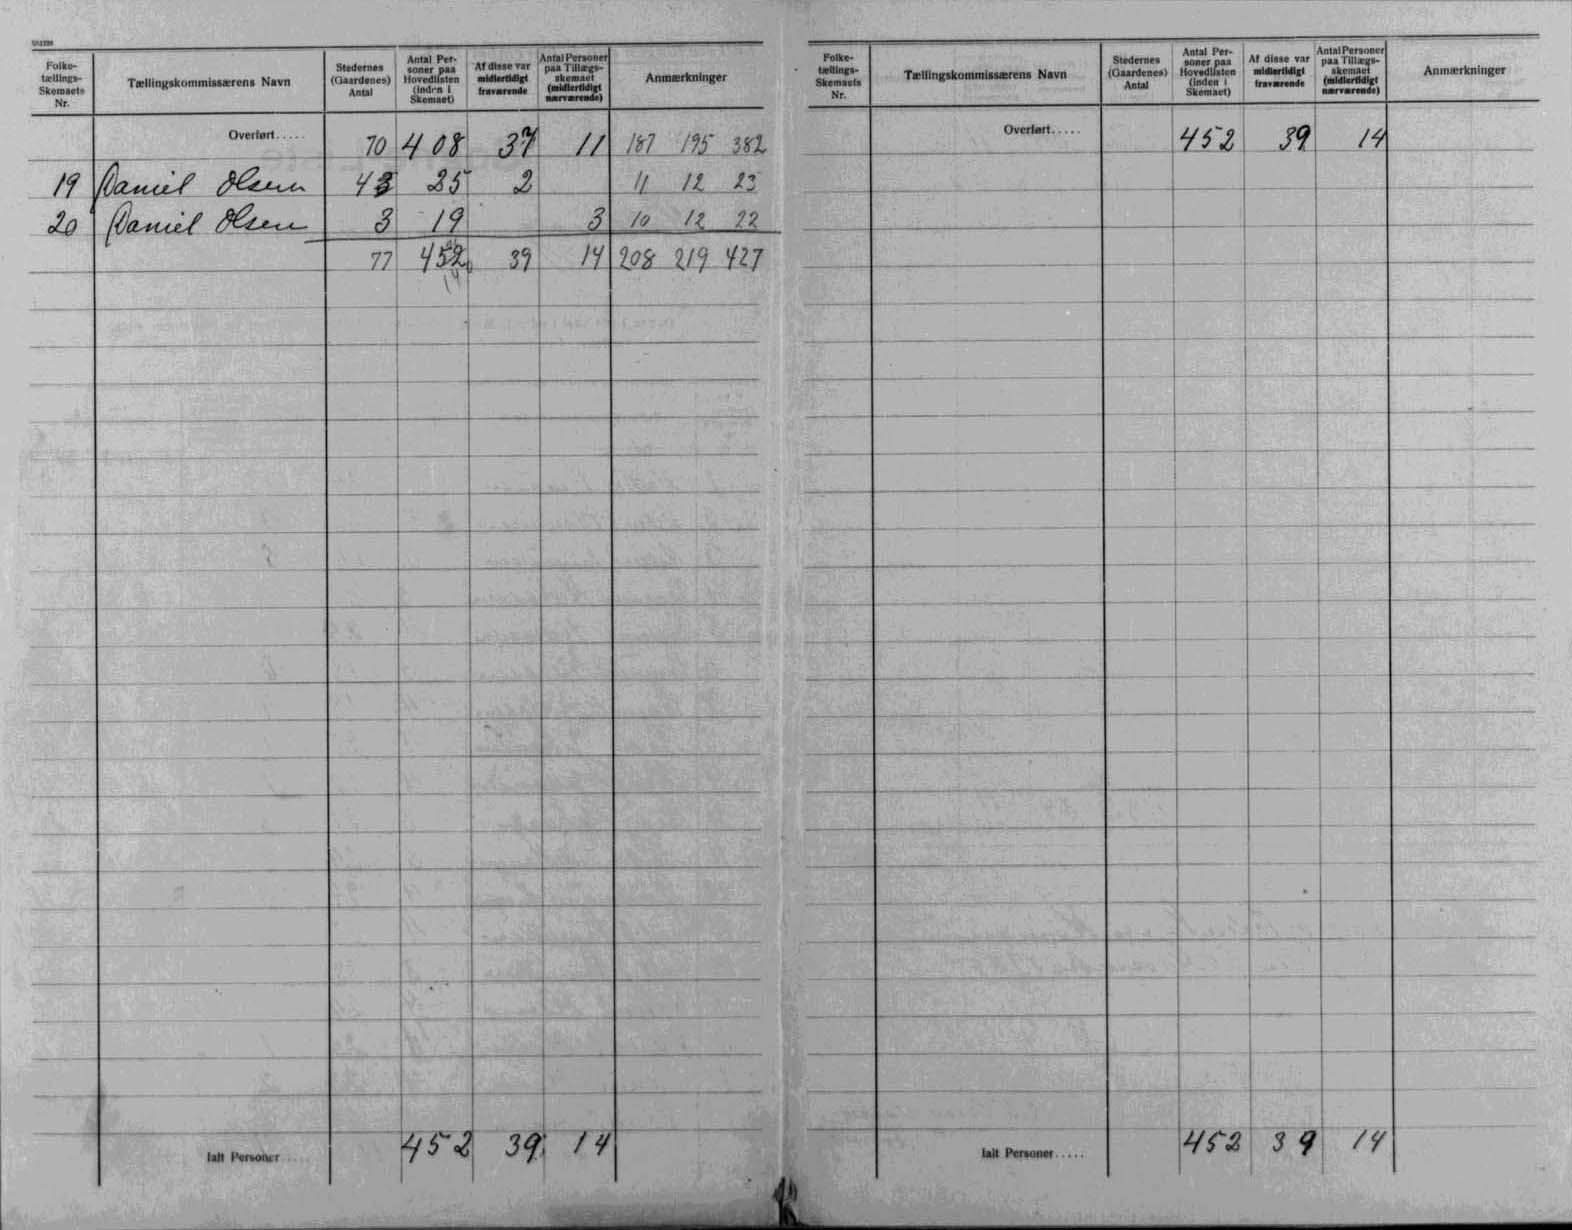 Folke-
tællings-
Skemaets
Nr.
Tællingskommissærens Navn
Stedernes
(Gaardenes)
Antal
Antal Per-
soner paa
Hovedlisten
(inden i
Skemaet)
Af disse var
midlertidigt
fraværende
Antal Personer
paa Tillægs-
skemaet
(midlertidigt
nærværende)
Anmærkninger
Overført..... 70 408 37 11 187 195 382
19 Daniel Olsen 4 25 2 11 12 23
20 Daniel Olsen 3 19 3 10 12 22
77 452 39 14 208 219 427
Ialt Personer..... 452 39 14
Folke-
tællings-
Skemaets
Nr.
Tællingskommissærens Navn
Stedernes
(Gaardenes)
Antal
Antal Per-
soner paa
Hovedlisten
(inden i
Skemaet)
Af disse var
midlertidigt
fraværende
Antal Personer
paa Tillægs-
skemaet
(midlertidigt
nærværende)
Anmærkninger
Overført..... 452 39 14
Ialt Personer..... 452 39 14